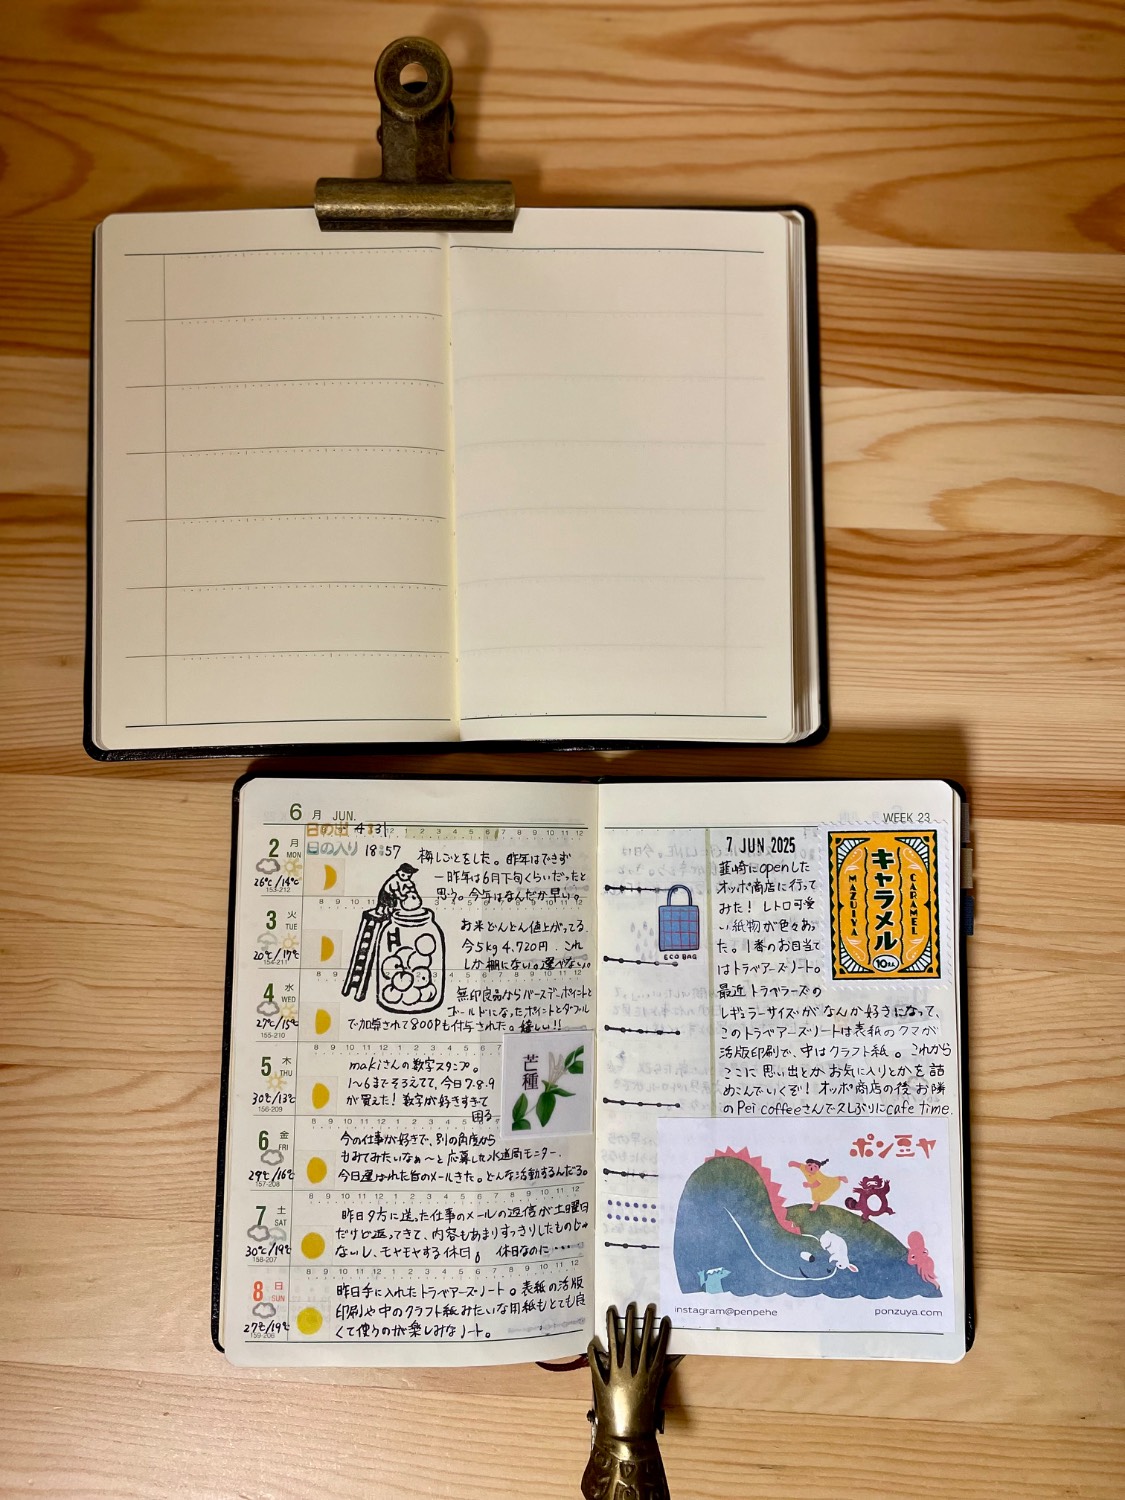 6 月 JUN.
日の出 4:31
日の入り 18:57
2 月 MON
26℃/14℃
153-212
梅しごとをした。昨年はできず
一昨年は6月下旬くらいだったと
思う。今年はなんだか早い。
3 火 TUE
20℃/17℃
154-211
お米どんどん値上がってる。
今5kg 4,720円。これ
しか棚にない。選べない。
4 水 WED
27℃/15℃
155-210
無印良品ならバースデーポイントと
ゴールドになったポイントとダブル
で加算されて800Pも付与された。嬉しい!!
5 木 THU
30℃/13℃
156-209
makiさんの数字スタンプ。
1〜6までそろえてて、今日7.8.9
が買えた!数字が好きすぎて
困る
芒種
6 金 FRI
29℃/16℃
157-208
今の仕事が好きで、別の角度から
もみてみたいなぁ〜と応募した水道局モニター。
今日選ばれた旨のメールきた。どんな活動するんだろ。
7 土 SAT
30℃/19℃
158-207
昨日夕方に送った仕事のメールの返信が土曜日
だけど返ってきて、内容もあまりすっきりしたものじゃ
ないし、モヤモヤする休日。休日なのに・・・
8 日 SUN
27℃/19℃
159-206
昨日手に入れたトラベアーズノート。表紙の活版
印刷や中のクラフト紙みたいな用紙もとても良
くて使うのが楽しみなノート。
WEEK 23
7 JUN 2025
韮崎にopenした
オッポ商店に行って
みた!レトロ可愛
い紙物が色々あっ
た。1番のお目当て
はトラベアーズノート。
最近トラベラーズの
レギュラーサイズがなんか好きになって、
このトラベアーズノートは表紙のクマが
活版印刷で、中はクラフト紙。これから
ここに思い出とかお気に入りとかを詰
めこんでいくぞ!オッポ商店の後お隣
のPei coffeeさんで久しぶりにcafe time.
ECO BAG
キャラメル
MAZUIYA
CARAMEL
ポン豆ヤ
instagram@penpehe
ponzuya.com